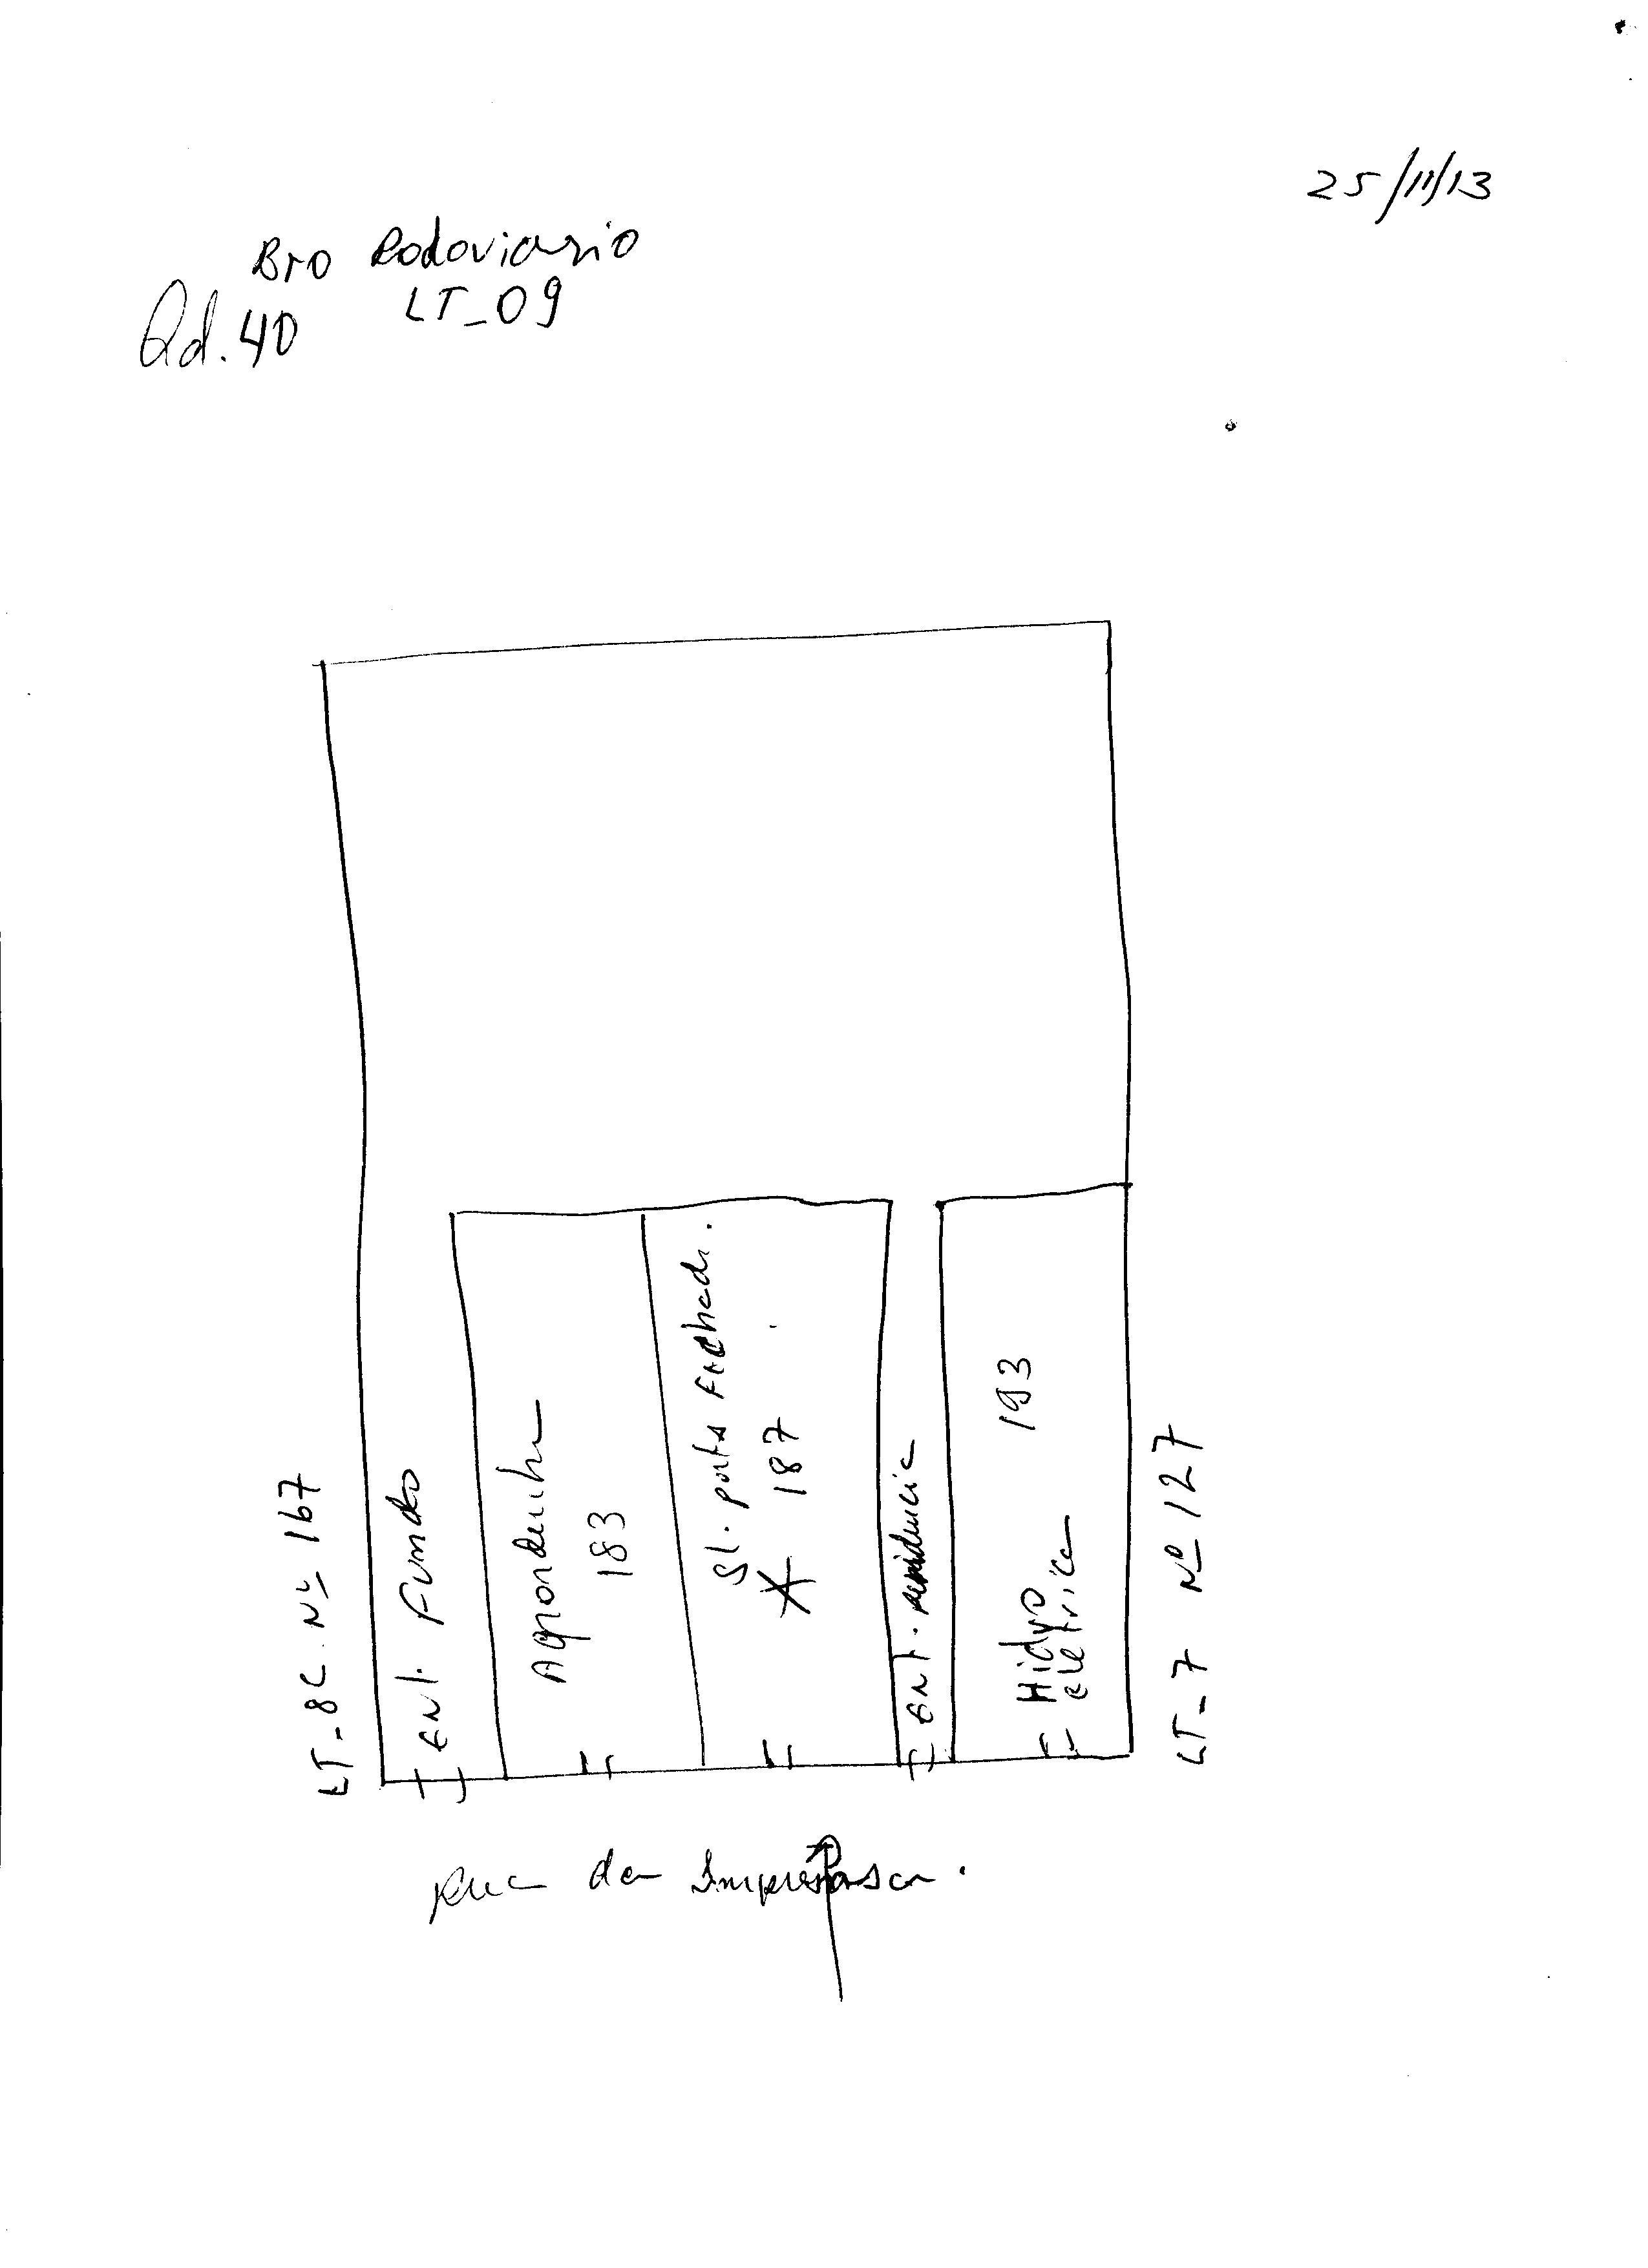 25/11/13
Bro Rodoviario
Qd. 40 LT-09
LT-8C Nº 167
Ent. Fundo
183
Sl. porta Fechada.
187
Ent. residencia
Hidro 193
eletrica
LT-7 Nº 127
Rua da Imprensa.